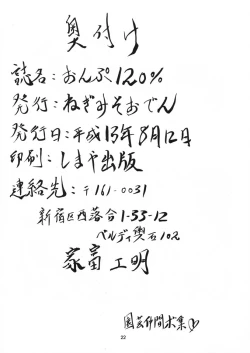 奥付け
誌名:おんぷ120%
発行:ねぎみそおでん
発行日:平成13年8月12日
印刷:しまや出版
連絡先:〒161-0031
新宿区西落合1-33-12
ベルディ興石102
家富工明
園芸仲間求集
22